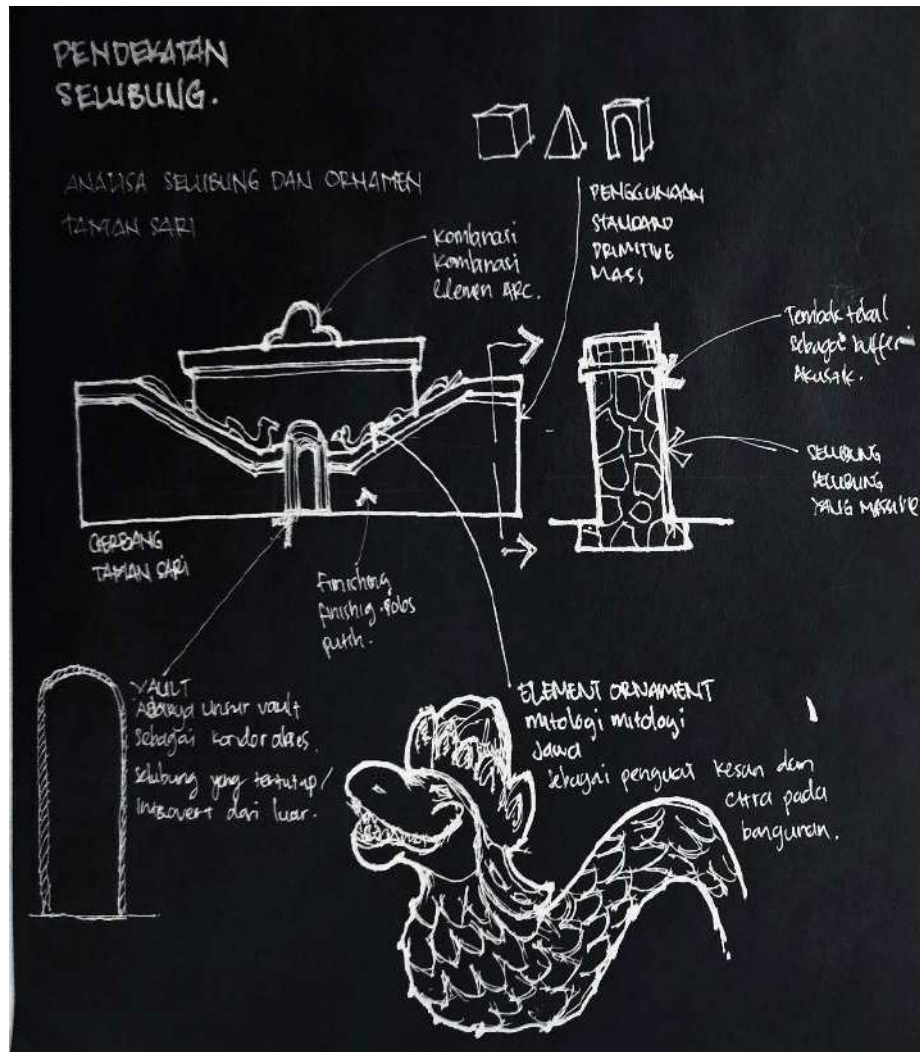 PENDEKATAN
SELUBUNG.
ANALISA SELUBUNG DAN ORNAMEN
TAMAN SARI
Kombinasi
Kombinasi
Elemen ARC.
PENGGUNAAN
STANDARD
PRIMITIVE
MASS
Tembok tebal
sebagai buffer
Akustik.
SELUBUNG
SELUBUNG
YANG MASSIVE
GERBANG
TAMAN SARI
Finishing
finishig polos
putih.
VAULT
Adanya unsur vault
sebagai koridor akses.
Selubung yang tertutup/
Introvert dari luar.
ELEMENT ORNAMENT
mitologi mitologi
Jawa
sebagai penguat kesan dan
citra pada
bangunan.